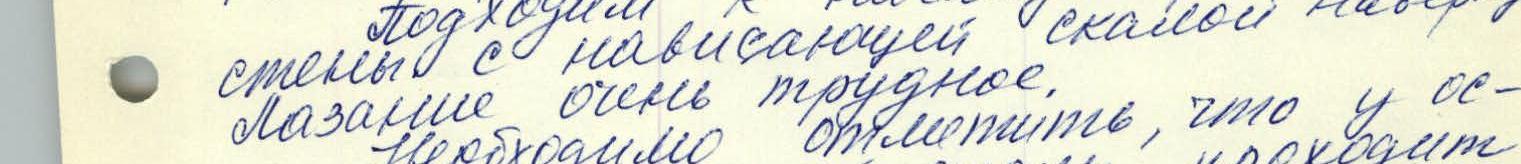 Подходим к
стены с нависающей скалой наверху
Лазание очень трудное.
Необходимо отметить, что у ос-
проходит